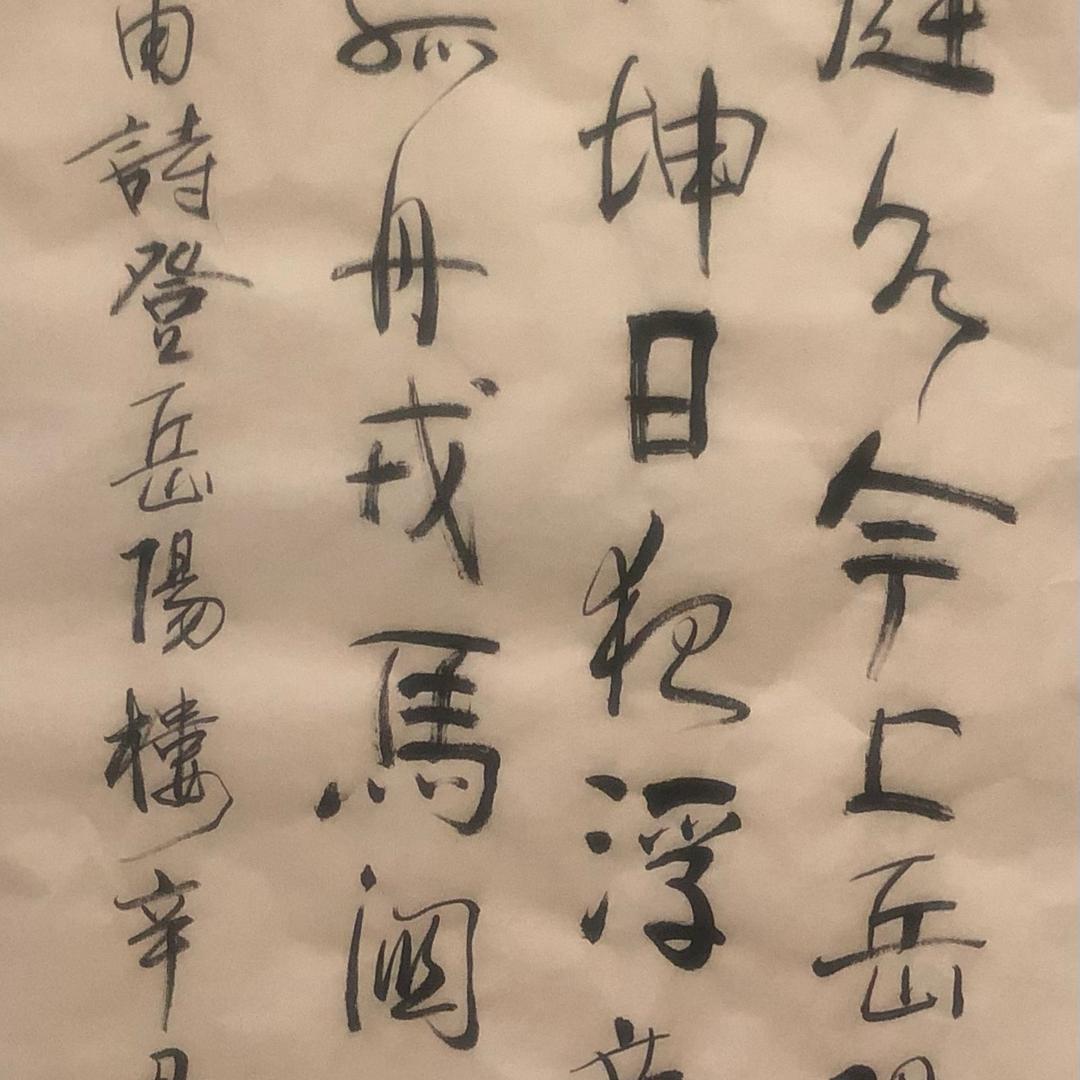 庭水今上岳
坤日夜浮
孤舟戎馬關
甫詩登岳陽樓辛